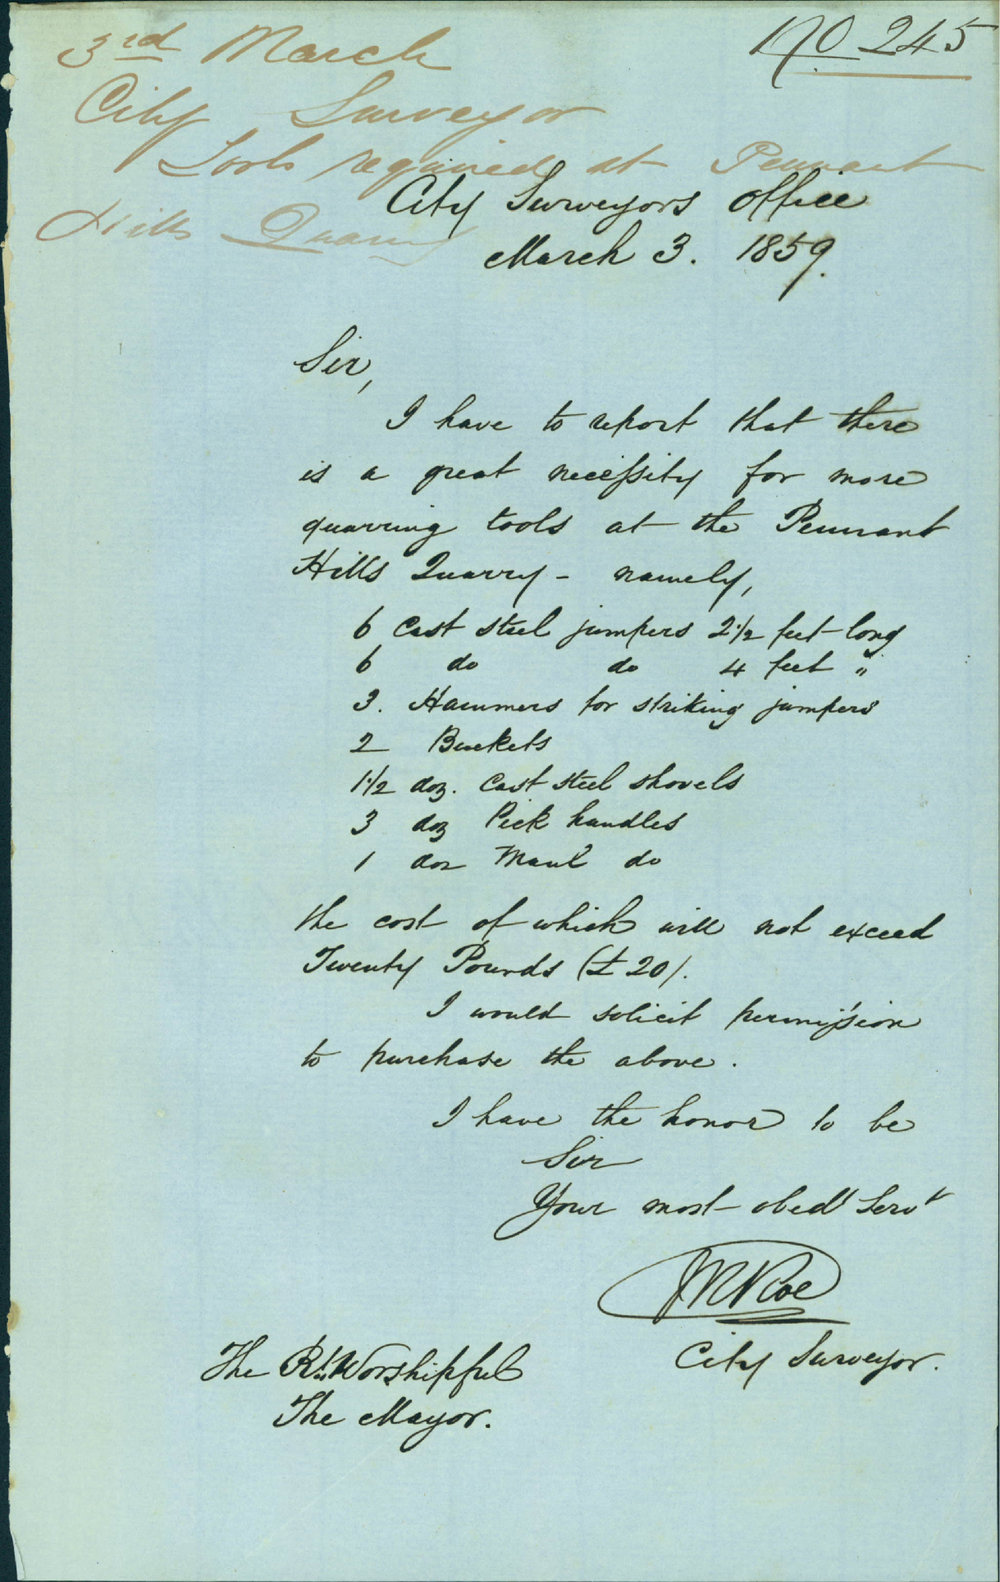 No 245
3rd March
City Surveyor
Tools required at Pennant
Hills Quarry
City Surveyors Office
March 3. 1859.
Sir,
I have to report that there
is a great necessity for more
quarring tools at the Pennant
Hills Quarry - namely,
6 Cast steel jumpers 2 1/2 feet long
6 do do 4 feet "
3. Hammers for striking jumpers
2 Buckets
1 1/2 doz. Cast steel shovels
3 doz Pick handles
1 doz Maul do
the cost of which will not exceed
Twenty Pounds (£20).
I would solicit permission
to purchase the above.
I have the honor to be
Sir
Your most obedt Servt
City Surveyor.
The Rt. Worshipful
The Mayor.